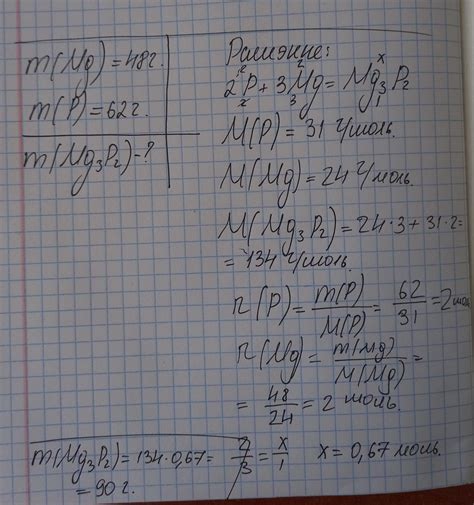 m(Mg)=48г.
m(P)=62г.
m(Mg₃P₂)-?
Решение:
2 2 x
2P+3Mg=Mg₃P₂
x 3 1
M(P)=31 г/моль.
M(Mg)=24 г/моль.
M(Mg₃P₂)=24·3+31·2=
=134 г/моль.
n(P)=m(P)/M(P)=62/31=2моль
n(Mg)=m(Mg)/M(Mg)=
=48/24=2 моль.
2/3=x/1 x=0,67 моль.
m(Mg₃P₂)=134·0,67=
=90г.